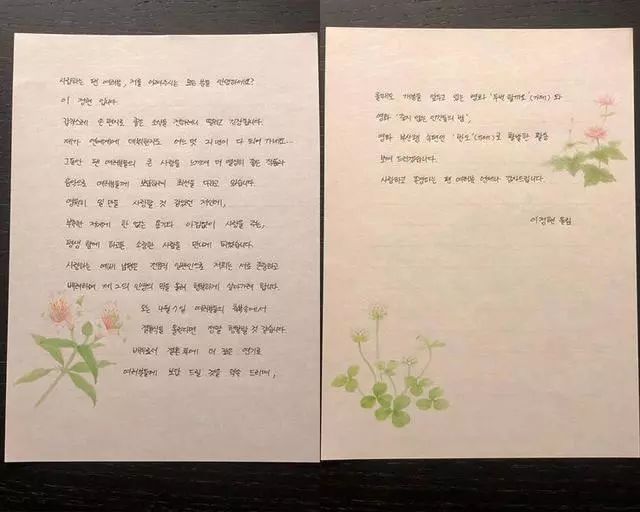 사랑하는 팬 여러분, 저를 아껴주시는 모든 분들 안녕하세요?
이 정현 입니다.
갑작스레 손 편지로 좋은 소식을 전하려니 떨리고 긴장됩니다.
제가 연예계에 데뷔한지도 어느 덧 21년이 다 되어 가네요…
그동안 팬 여러분들의 큰 사랑을 느끼며 더 열심히 좋은 작품과
음악으로 여러분들께 보답하려 최선을 다하고 있습니다.
영원히 일 만을 사랑할 것 같았던 저인데,
부족한 저에게 한 없는 용기와 아낌없이 사랑을 주는,
평생 함께 하고픈 소중한 사람을 만나게 되었습니다.
사랑하는 예비 남편은 전문직 일반인으로 저희는 서로 존중하고
배려하며 제 2의 인생의 막을 열며 행복하게 살아가려 합니다.
오는 4월 7일 여러분들의 축복속에서
결혼식을 올린다면 정말 행복할 것 같습니다.
배우로서 결혼 후에 더 깊은 연기로
여러분들께 보답 드릴 것을 약속 드리며,
올해도 개봉을 앞두고 있는 영화 '두번 할까요'(가제) 와
영화 '죽지 않는 인간들의 밤',
영화 부산행 후편인 '반도'(가제)로 활발한 활동
보여 드리겠습니다.
사랑하고 존경하는 팬 여러분 언제나 감사드립니다.
이정현 올림